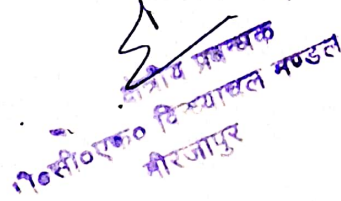 क्षेत्रीय प्रबन्धक
पी०सी०एफ० विन्ध्याचल मण्डल
मीरजापुर